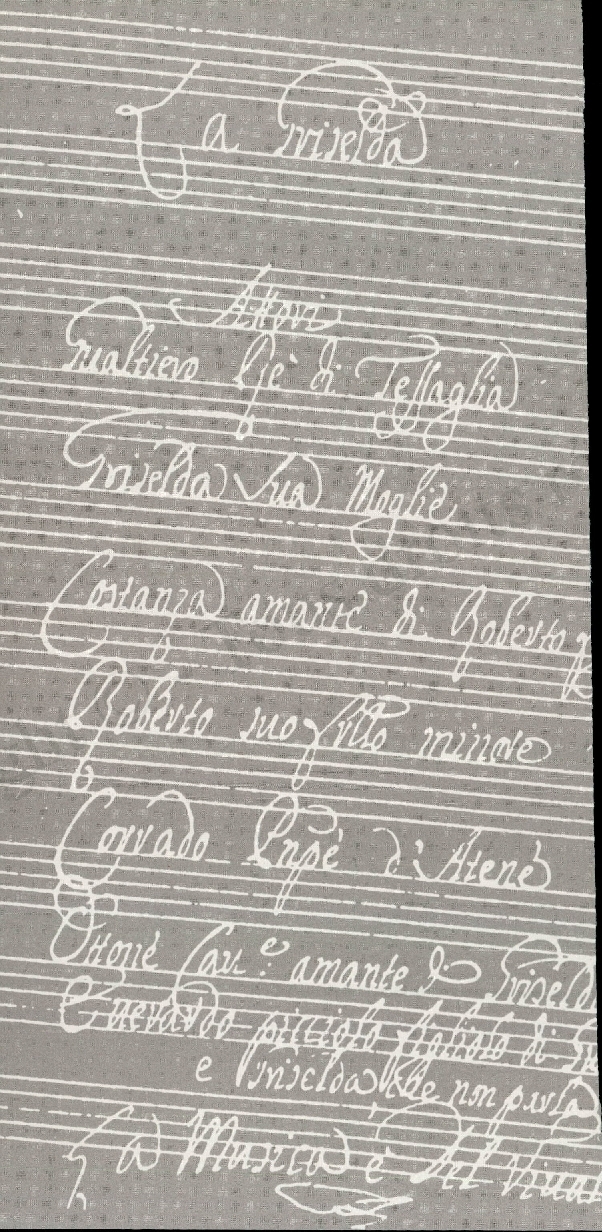 La Griselda
Attori
Gualtiero Rè di Tessaglia
Griselda sua Moglie
Costanza amante di Roberto
Roberto suo fr̃ello minore
Corrado Pnpè d'Atene
Ottone Cau.e amante di Griselda
Everardo picciolo figliolo di
e Griselda che non parla
La Musica è Del Viual